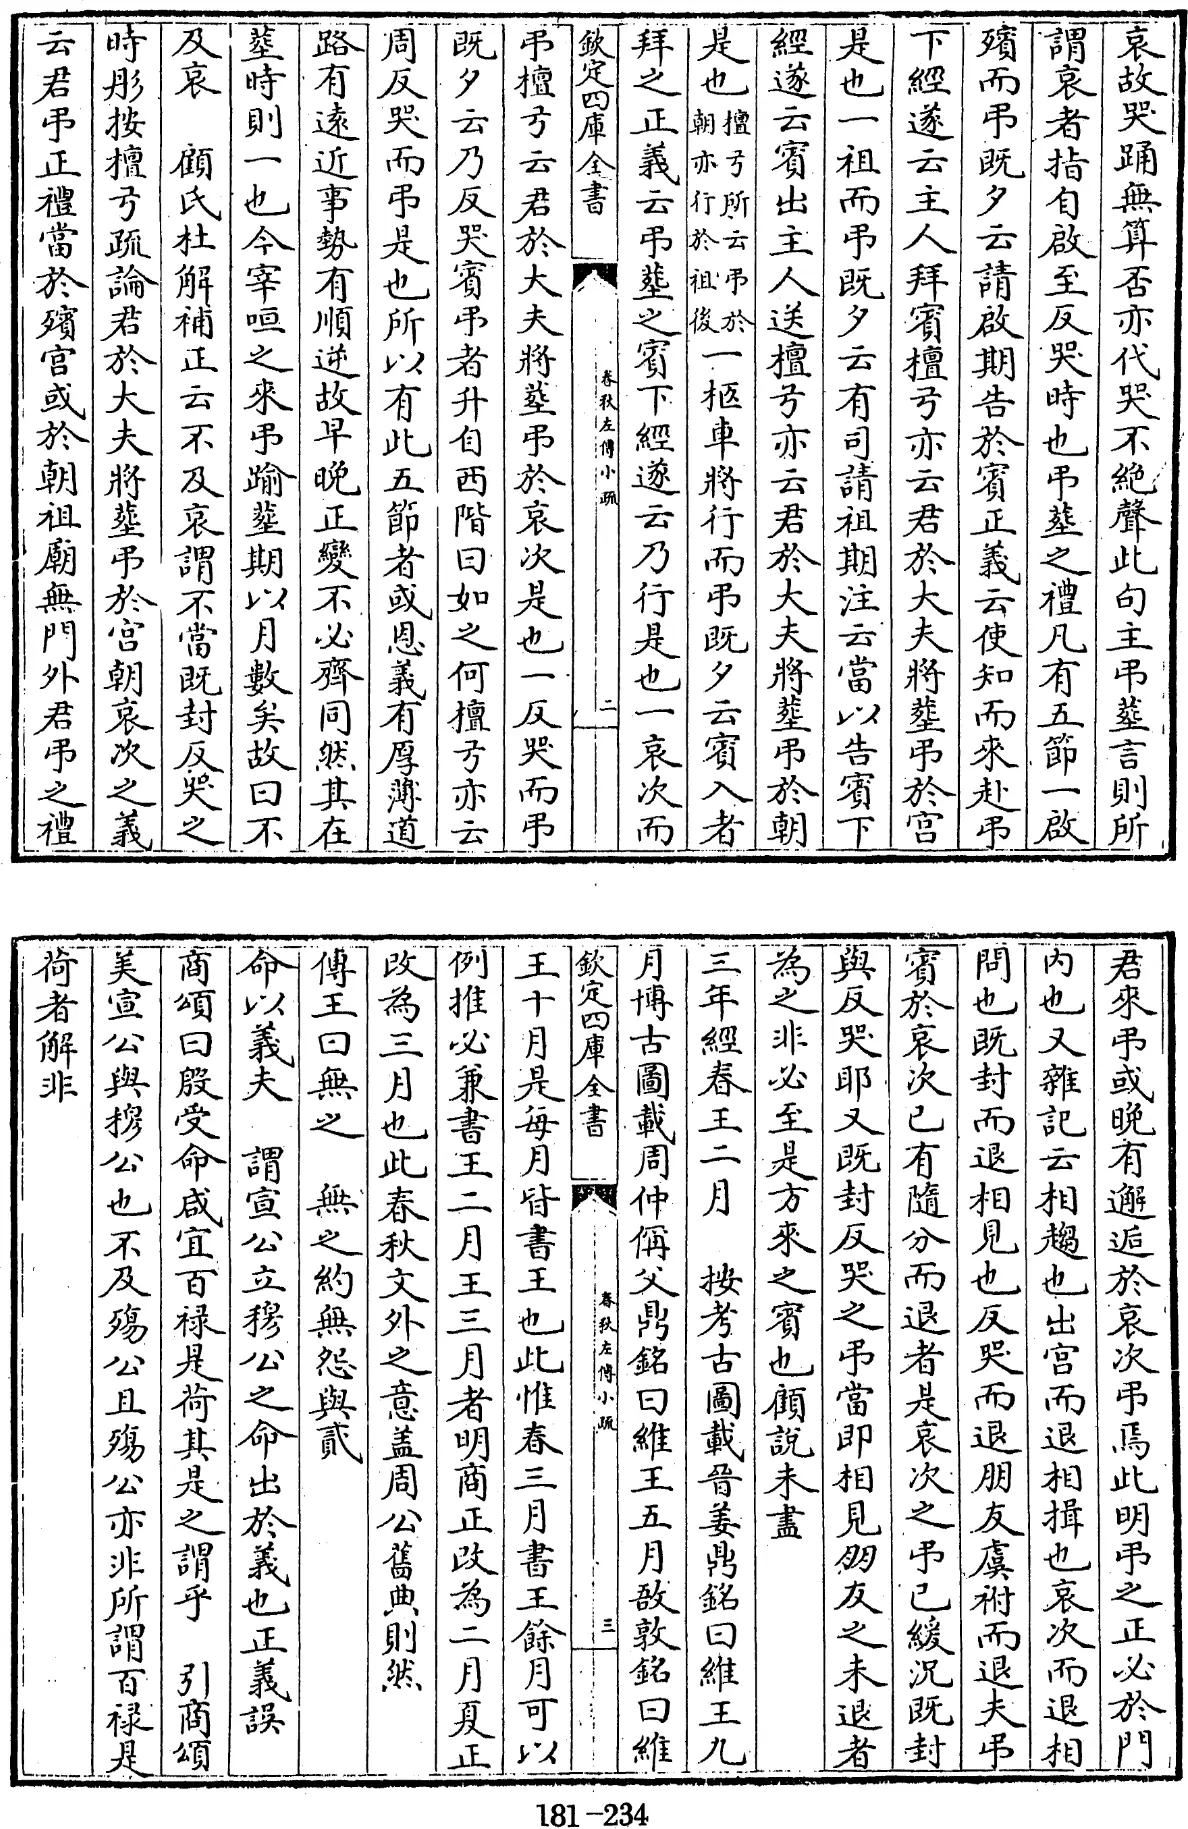 哀故哭踊無算否亦代哭不絶聲此句主弔塟言則所
謂哀者指自啟至反哭時也弔塟之禮凡有五節一啟
殯而弔既夕云請啟期告於賓正義云使知而來赴弔
下經遂云主人拜賓檀弓亦云君於大夫將塟弔於宫
是也一祖而弔既夕云有司請祖期注云當以告賓下
經遂云賓出主人送檀弓亦云君於大夫將塟弔於朝
是也檀弓所云弔於
朝亦行於祖後一柩車將行而弔既夕云賓入者
拜之正義云弔塟之賓下經遂云乃行是也一哀次而
欽定四庫全書
春秋左傳小疏
二
弔檀弓云君於大夫將塟弔於哀次是也一反哭而弔
既夕云乃反哭賓弔者升自西階曰如之何檀弓亦云
周反哭而弔是也所以有此五節者或恩義有厚薄道
路有遠近事勢有順逆故早晚正變不必齊同然其在
塟時則一也今宰咺之來弔踰塟期以月數矣故曰不
及哀　顧氏杜解補正云不及哀謂不當既封反哭之
時彤按檀弓疏論君於大夫將塟弔於宫朝哀次之義
云君弔正禮當於殯宫或於朝祖廟無門外君弔之禮
君來弔或晚有邂逅於哀次弔焉此明弔之正必於門
内也又雜記云相趨也出宫而退相揖也哀次而退相
問也既封而退相見也反哭而退朋友虞祔而退夫弔
賓於哀次已有隨分而退者是哀次之弔已緩況既封
與反哭耶又既封反哭之弔當即相見朋友之未退者
為之非必至是方來之賓也顧說未盡
三年經春王二月　按考古圖載晉姜鼎銘曰維王九
月博古圖載周仲偁父鼎銘曰維王五月敔敦銘曰維
欽定四庫全書
春秋左傳小疏
三
王十月是每月皆書王也此惟春三月書王餘月可以
例推必兼書王二月王三月者明商正改為二月夏正
改為三月也此春秋文外之意盖周公舊典則然
傳王曰無之　無之約無怨與貳
命以義夫　謂宣公立穆公之命出於義也正義誤
商頌曰殷受命咸宜百禄是荷其是之謂乎　引商頌
美宣公與穆公也不及殤公且殤公亦非所謂百禄是
荷者解非
181-234